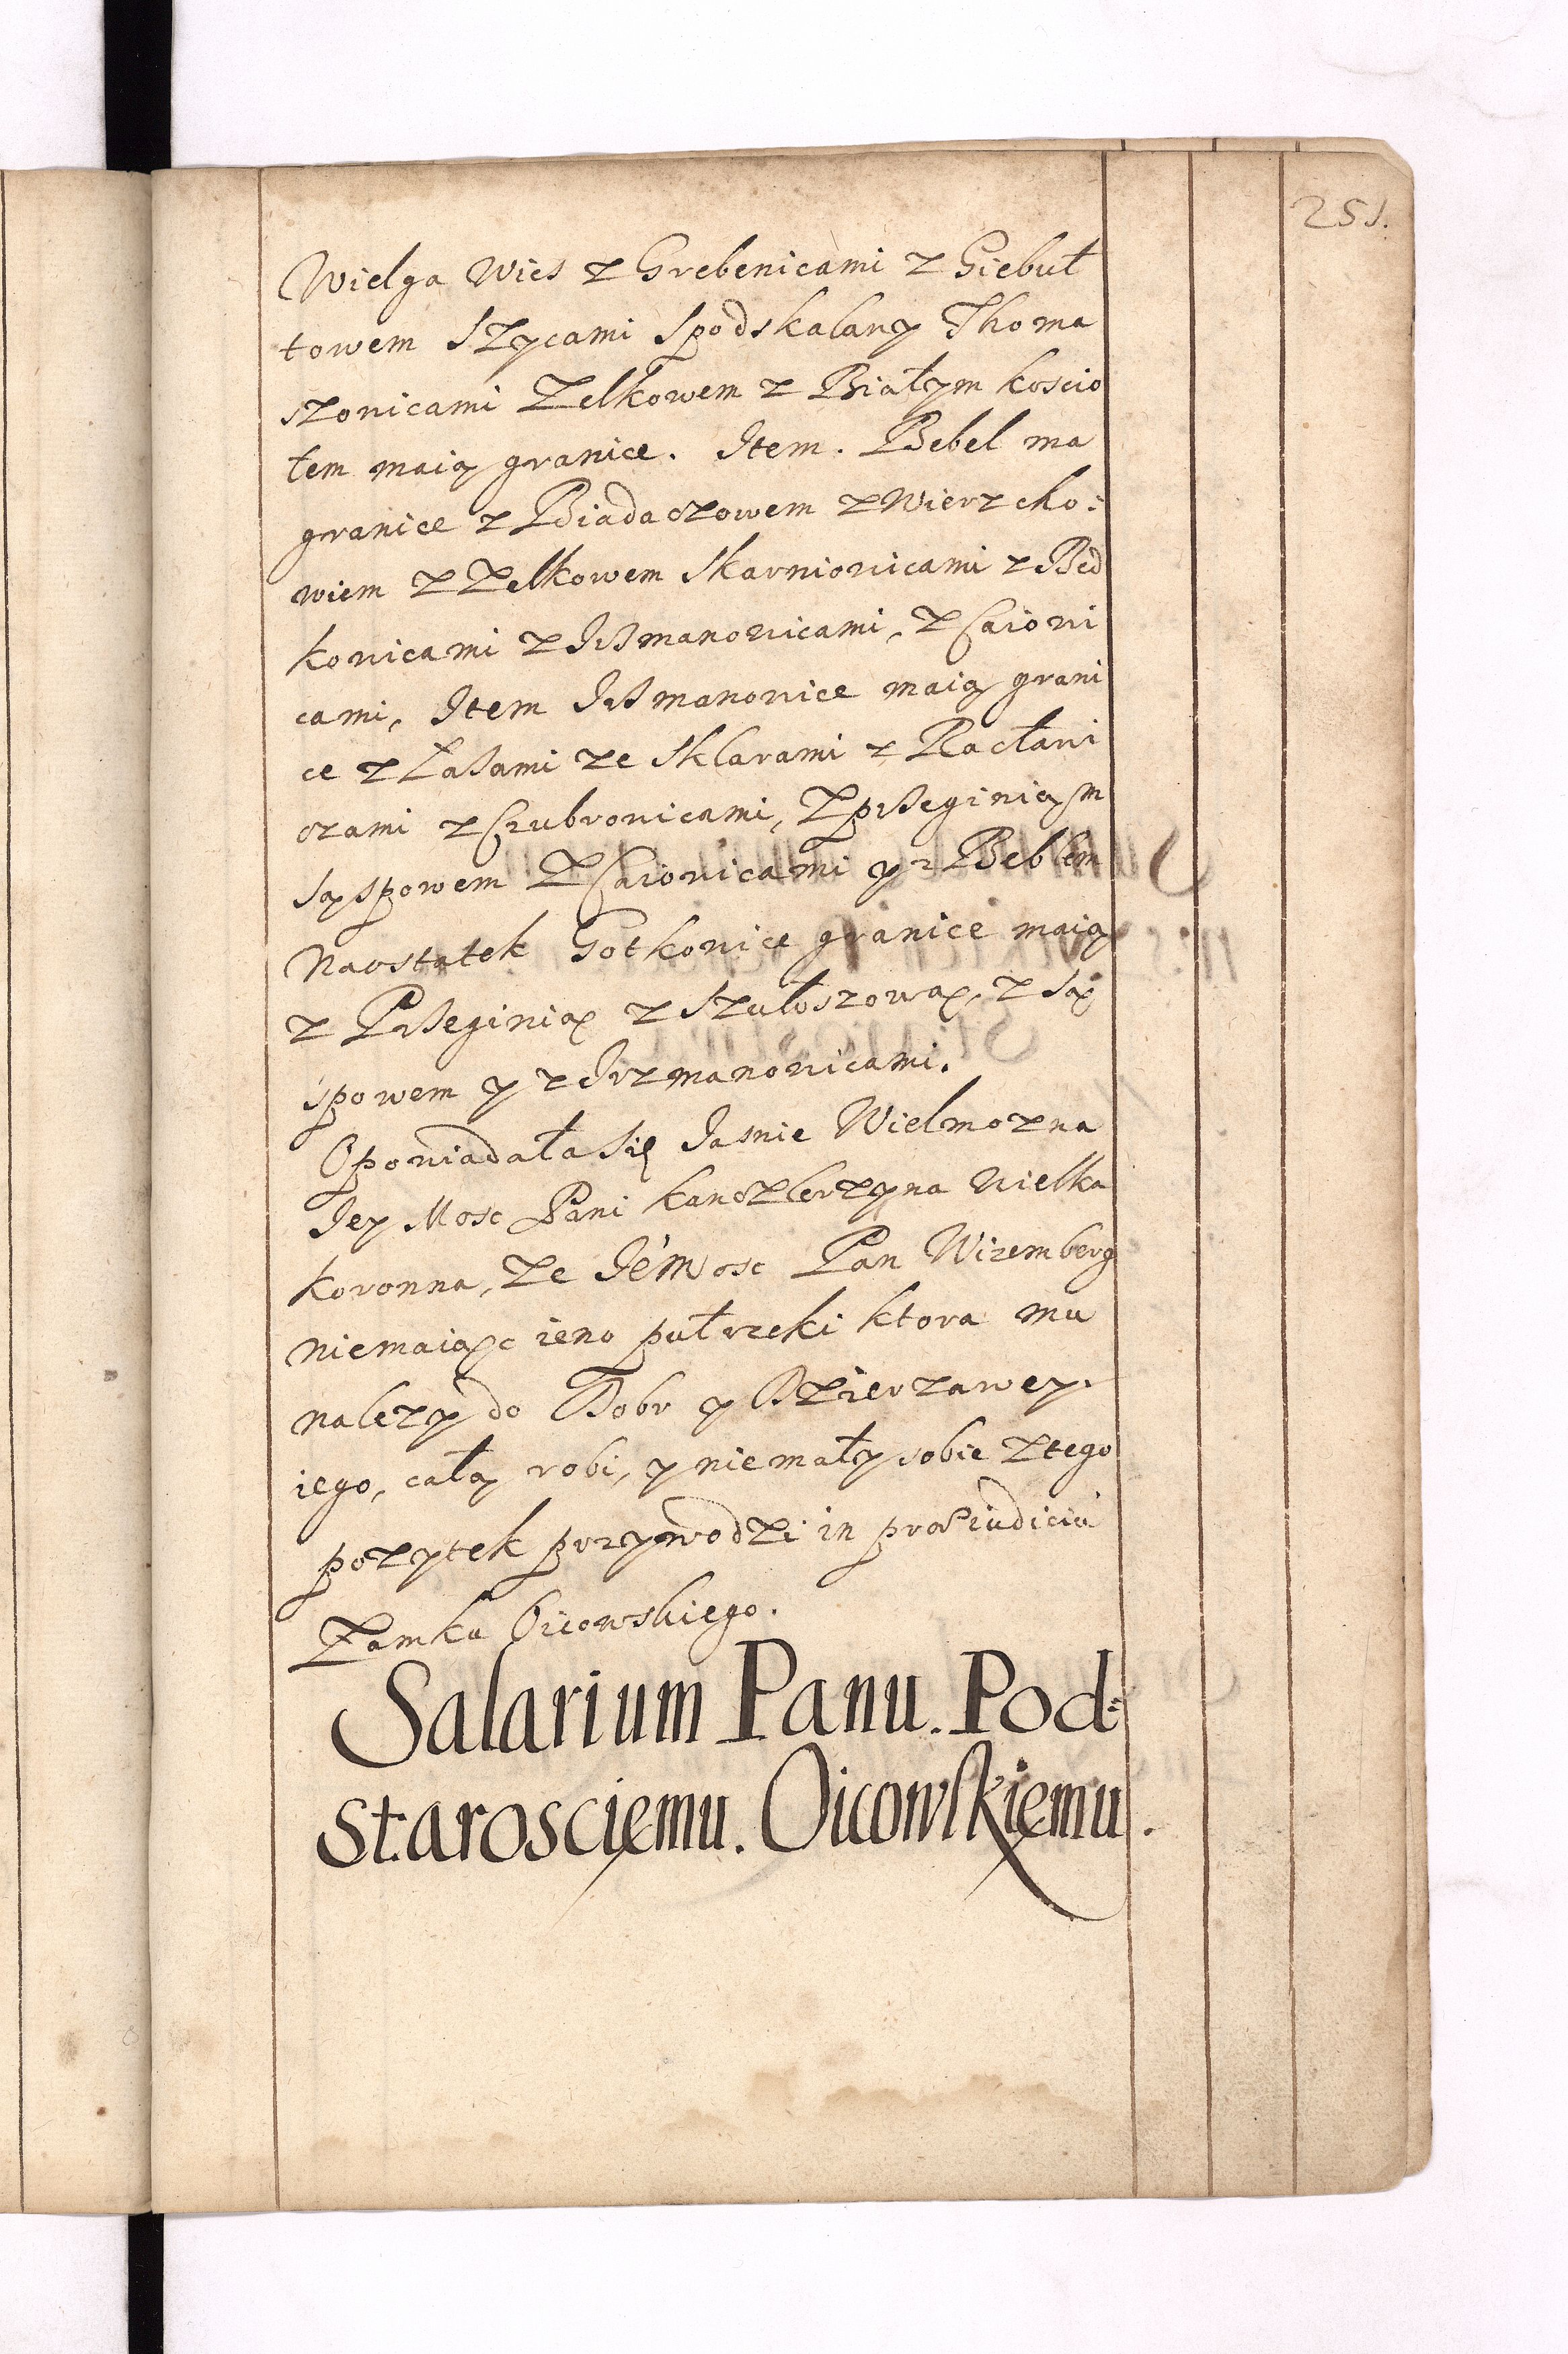 251.
Wielga Wies z Grebenicami z Giebuł
towem Szycami Spodskalany Thoma
szowicami Zelkowem z Białym koscio
łem maią granice. Item. Bebel ma
granice z Biadaczowem z Wierzcho:
wiem z Zelkowem Skarniowicami z Będ
kowicami z Irzmanowicami, z Caiowi
cami, Item Irzmanowice maią grani
ce z Łazami ze Sklarami z Racławi
czami z Czubrowicami, z przeginią m
Sąspowem z Caiowicami y z Beblem
Naostatek Gotkowice granice maią
z Przeginią z Szułoszową, z Są
spowem y z Irzmanowicami.
Opowiadała się Jasnie Wielmozna
Jey Mosc Pani kanczlerzyna wielka
koronna, ze Jeͦmosc Pan Wizemberg
niemaiąc ieno puł rzeki ktora mu
nalezy do Dobr y Dzierzawey
iego, całą robi, y niemały sobie z tego
pozytek przywodzi in praeiudiciū
Zamku Oicowskiego.
Salarium Panu. Pod:
starosciemu. Oicowskiemu.